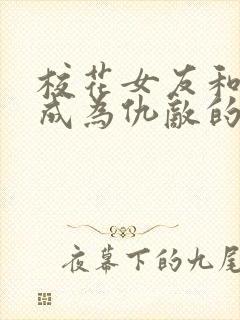 校花女友和
成为仇敌的
夜幕下的九尾